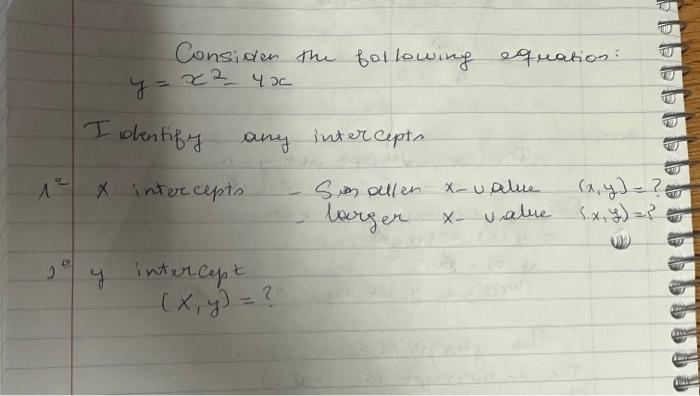 Consider the following equation:
y = x² - 4x
Identify any intercepts
1º x intercepts - Smaller x-value (x,y) = ?
- larger x-value (x,y) = ?
2º y intercept
(x,y) = ?